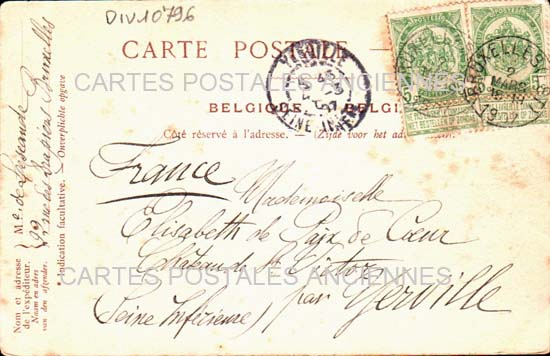 DIV10796
CARTE POSTALE
YERVILLE
SEINE INFRE
BRUXELLES
2
MARS
BELGIQUE. BELGI
Côté réservé à l'adresse. — (Zijde voor het adr
CARTES POSTALES ANCIENNES
France
Mademoiselle
Elisabeth de Paix de Cœur
Château St Victor
CARTES POSTALES ANCIENNES
par Yerville
(Seine Inférieure)
Nom et adresse
de l'expéditeur.
Naam en adres
van den afzender.
Mle. de
29 rue des Drapiers Bruxelles
Indication facultative. / Onverplichte opgave